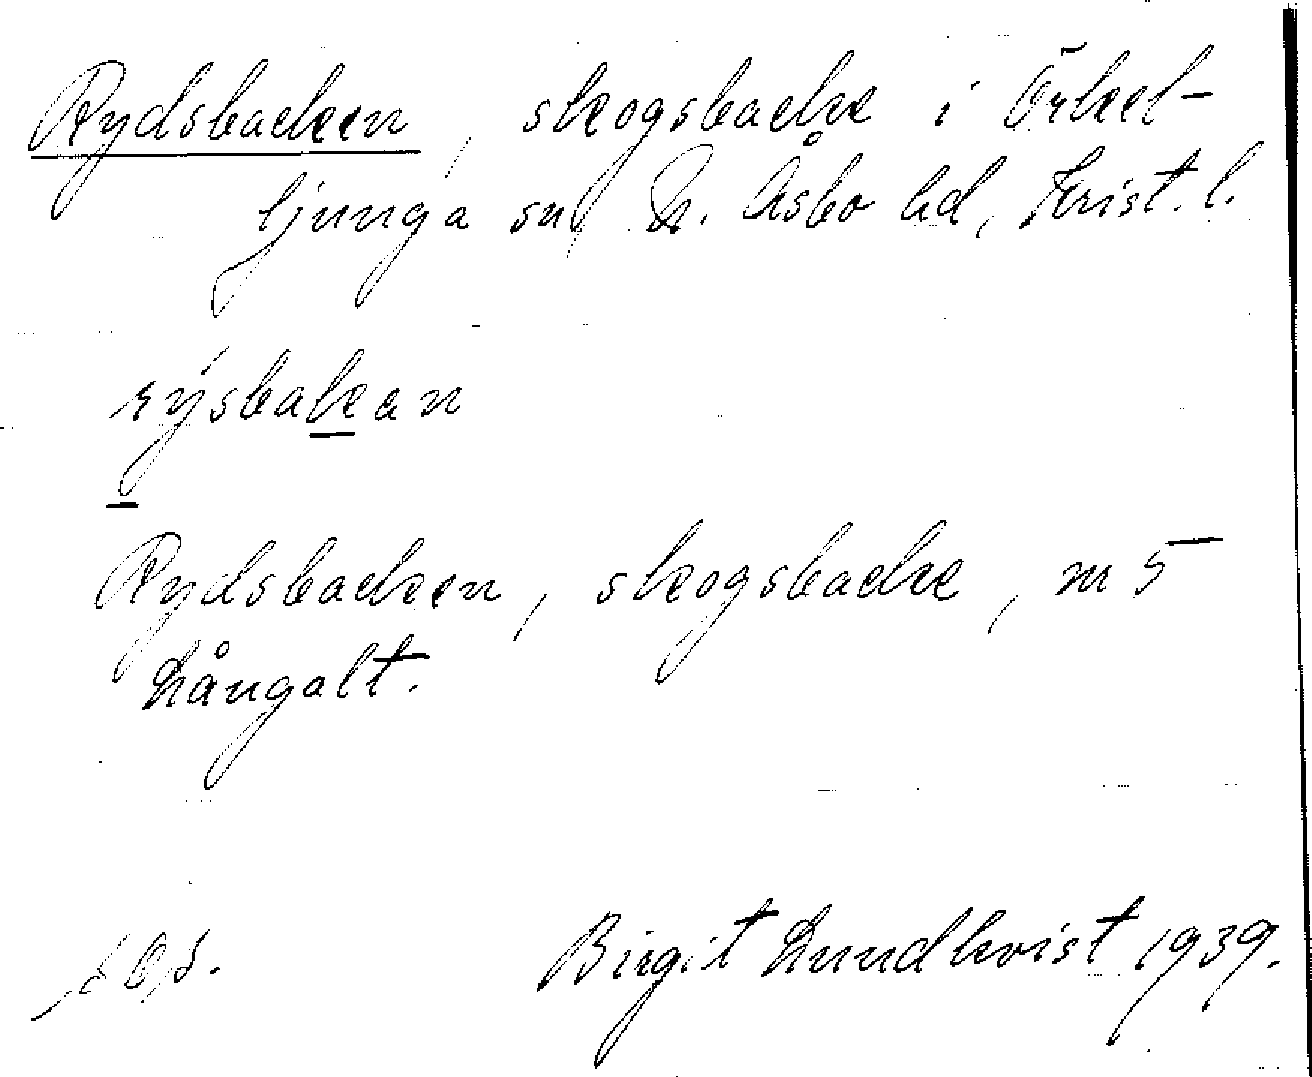 Rydsbacken, skogsbacke i Örkel-
ljunga sn, N. Åsbo hd, Krist. l.
rýsbakan
Rydsbacken, skogsbacke, nr 5
Långalt.
Birgit Lundkvist 1939.